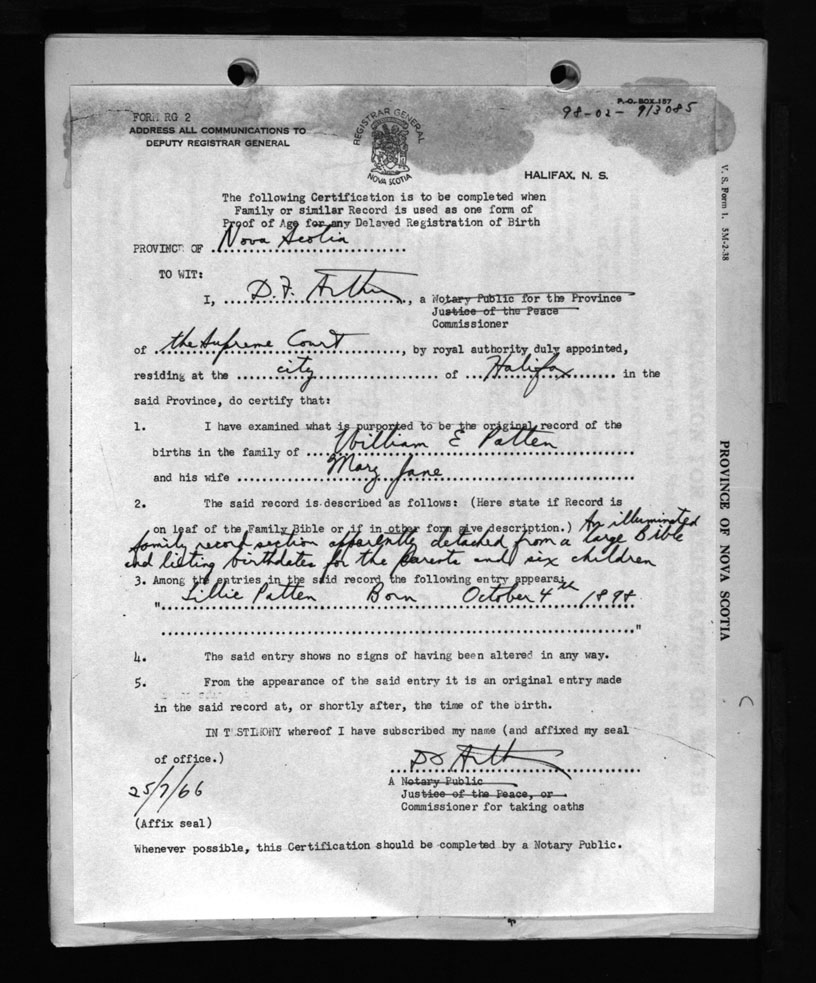 P.O. BOX 157
FORM RG 2
98-02-913085
ADDRESS ALL COMMUNICATIONS TO
DEPUTY REGISTRAR GENERAL
REGISTRAR GENERAL
NOVA SCOTIA
HALIFAX, N. S.
The following Certification is to be completed when
Family or similar Record is used as one form of
Proof of Age for any Delayed Registration of Birth
PROVINCE OF Nova Scotia
TO WIT:
I, D.F. Arthur, a Notary Public for the Province
Justice of the Peace
Commissioner
of the Supreme Court, by royal authority duly appointed,
residing at the city of Halifax in the
said Province, do certify that:
1. I have examined what is purported to be the original record of the
births in the family of William E Patten
and his wife Mary Jane
2. The said record is described as follows: (Here state if Record is
on leaf of the Family Bible or if in other form give description.) An illuminated
family record section apparently detached from a large Bible
and listing birthdates for the parents and six children
3. Among the entries in the said record the following entry appears:
"Lillie Patten Born October 4th 1898
"
4. The said entry shows no signs of having been altered in any way.
5. From the appearance of the said entry it is an original entry made
in the said record at, or shortly after, the time of the birth.
IN TESTIMONY whereof I have subscribed my name (and affixed my seal
of office.)
A Notary Public
Justice of the Peace, or
25/7/66
Commissioner for taking oaths
(Affix seal)
Whenever possible, this Certification should be completed by a Notary Public.
V. S. Form 1. 5M-2-38
PROVINCE OF NOVA SCOTIA